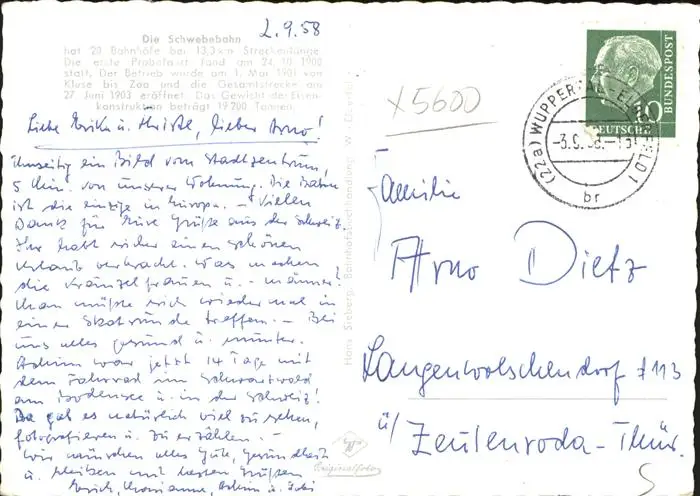 2.9.58
Die Schwebebahn
hat 20 Bahnhöfe bei 13,3 km Streckenlänge.
Die erste Probefahrt fand am 24. 10. 1900
statt. Der Betrieb wurde am 1. Mai 1901 von
Kluse bis Zoo und die Gesamtstrecke am
27 Juni 1903 eröffnet. Das Gewicht der Eisen-
konstruktion beträgt 19 200 Tonnen.
Liebe Erika u. Christl, lieber Arno!
Umseitig ein Bild vom Stadtzentrum,
5 Min. von unserer Wohnung. Die Bahn
ist die einzige in Europa. - Vielen
Dank für Eure Grüße aus der Schweiz.
Ihr habt sicher einen schönen
Urlaub verbracht. Was machen
die Kränzelfrauen u. - männer?
Man müßte sich wieder mal in
einer Skatrunde treffen. - Bei
uns alles gesund u. munter.
Achim war jetzt 14 Tage mit
dem Fahrrad im Schwarzwald
am Bodensee u. in der Schweiz!
Da gab es natürlich viel zu sehen,
fotografieren u. zu erzählen. -
Wir wünschen alles Gute, Gesundheit
u. bleiben mit besten Grüßen
Erich, Marianne, Achim u.
Hans Sieberg, Bahnhofsbuchhandlung, W.
Originalfoto
x5600
(22a) WUPPERTAL-ELBERFELD 1
-3.9.58.-15
br
10
DEUTSCHE
BUNDESPOST
Familie
Arno Dietz
Langenwolschendorf # 113
ü/ Zeulenroda-Thür.
5